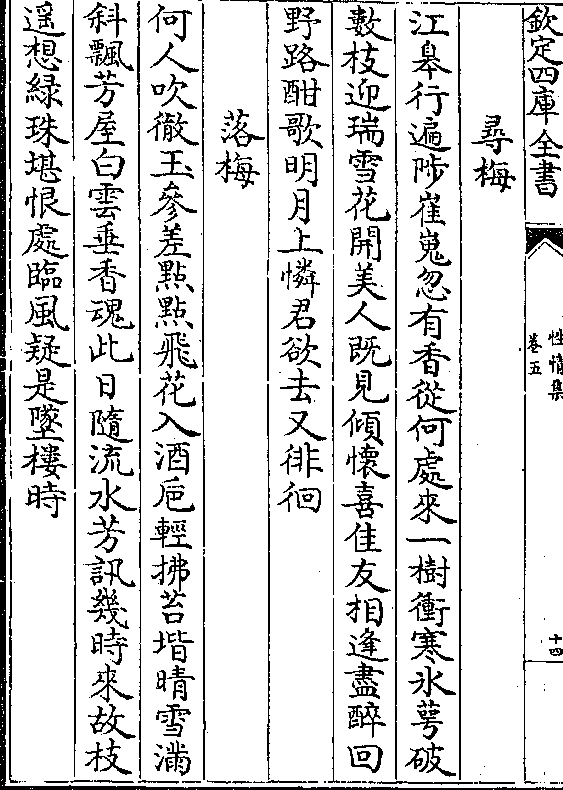 欽定四庫全書
性情集
卷五
十四
尋梅
江皋行遍陟崔嵬忽有香從何處來一樹衝寒氷萼破
數枝迎瑞雪花開美人既見傾懷喜佳友相逢盡醉回
野路酣歌明月上憐君欲去又徘徊
落梅
何人吹徹玉參差點點飛花入酒巵輕拂苔堦晴雪滿
斜飄芳屋白雲垂香魂此日隨流水芳訊幾時來故枝
遥想緑珠堪恨處臨風疑是墜樓時